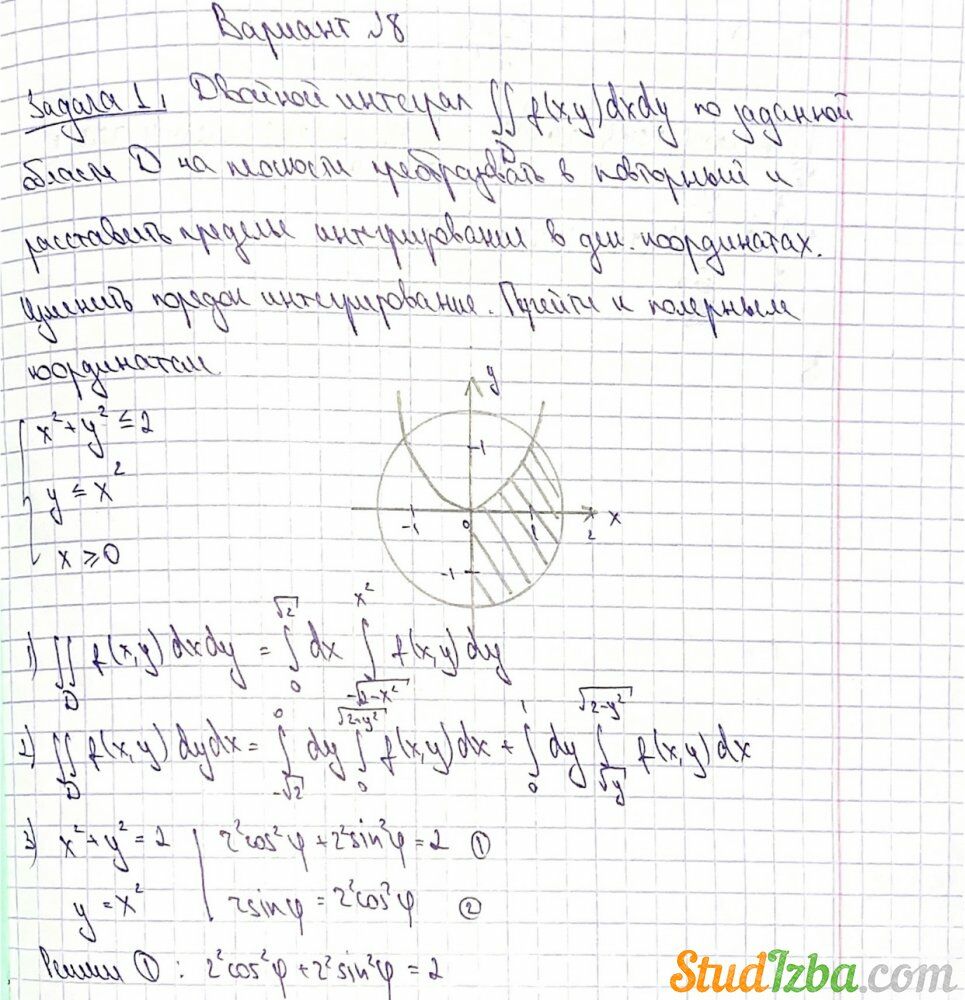 Вариант 18
Задача 1. Двойной интеграл ∬ f(x,y)dxdy по заданной
D
области D на плоскости преобразовать в повторный и
расставить пределы интегрирования в дек. координатах.
Изменить порядок интегрирование. Перейти к полярным
координатам
x² + y² ≤ 2
y ≤ x²
x ≥ 0
y
1
-1 0 1 2 x
-1
1) ∬_D f(x,y)dxdy = ∫_0^{√2} dx ∫_{-√(2-x²)}^{x²} f(x,y)dy
2) ∬_D f(x,y)dydx = ∫_{-√2}^0 dy ∫_0^{√(2-y²)} f(x,y)dx + ∫_0^1 dy ∫_{√y}^{√(2-y²)} f(x,y)dx
3) x² + y² = 2 { r²cos²φ + r²sin²φ = 2 ①
y = x² rsinφ = r²cos²φ ②
Решим ①: r²cos²φ + r²sin²φ = 2
StudIzba.com